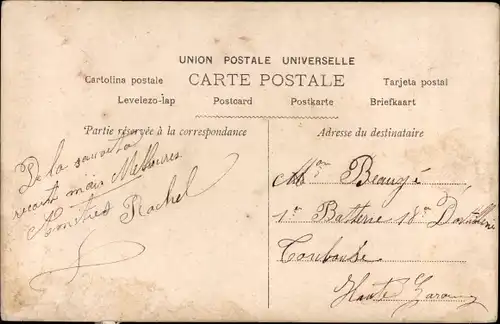 UNION POSTALE UNIVERSELLE
Cartolina postale CARTE POSTALE Tarjeta postal
Levelezo-lap Postcard Postkarte Briefkaart
Partie réservée à la correspondance
De la
mais Meilleures
Amitiés Rachel
Adresse du destinataire
Beaugé
1re Batterie 18e
Toulouse
Haute Garonne